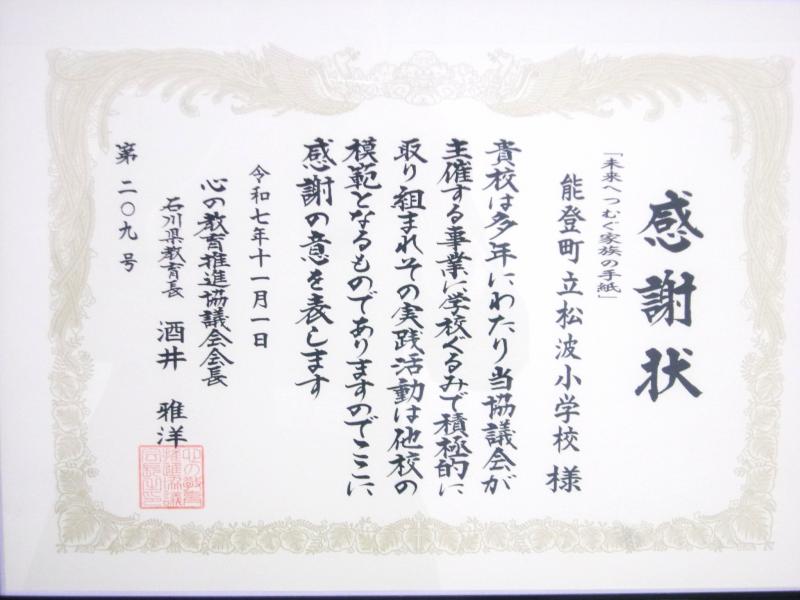 感謝状
「未来へつむぐ家族の手紙」
能登町立松波小学校 様
貴校は多年にわたり当協議会が
主催する事業に学校ぐるみで積極的に
取り組まれその実践活動は他校の
模範となるものでありますのでここに
感謝の意を表します
令和七年十一月一日
心の教育推進協議会会長
石川県教育長 酒井 雅洋
第二〇九号